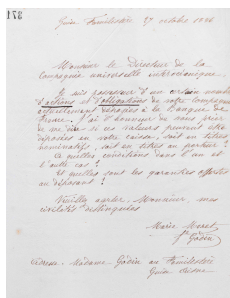 371
Guise Familistère 29 octobre 1886
Monsieur le Directeur de la
Compagnie universelle interocéanique.
Je suis possesseur d'un certain nombre
d'actions et d'obligations de votre Compagnie
actuellement déposées à la Banque de
France. J'ai l'honneur de vous prier
de me dire si ces valeurs peuvent être
déposées en votre caisse, soit en titres
nominatifs, soit en titres au porteur ?
Et quelles conditions dans l'un et
l'autre cas ?
Et quelles sont les garanties offertes
au déposant ?
Veuillez agréer, Monsieur, mes
civilités distinguées
Marie Moret
Godin
Adresse. Madame Godin au Familistère
Guise Aisne